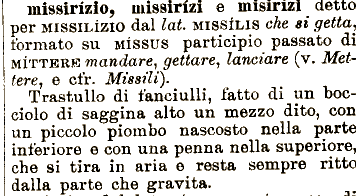 missirízio, missirízi e misirízi detto
per MISSILÍZIO dal lat. MISSÍLIS che si getta,
formato su MISSUS participio passato di
MÍTTERE mandare, gettare, lanciare (v. Met-
tere, e cfr. Míssili).
Trastullo di fanciulli, fatto di un boc-
ciolo di saggina alto un mezzo dito, con
un piccolo piombo nascosto nella parte
inferiore e con una penna nella superiore,
che si tira in aria e resta sempre ritto
dalla parte che gravita.